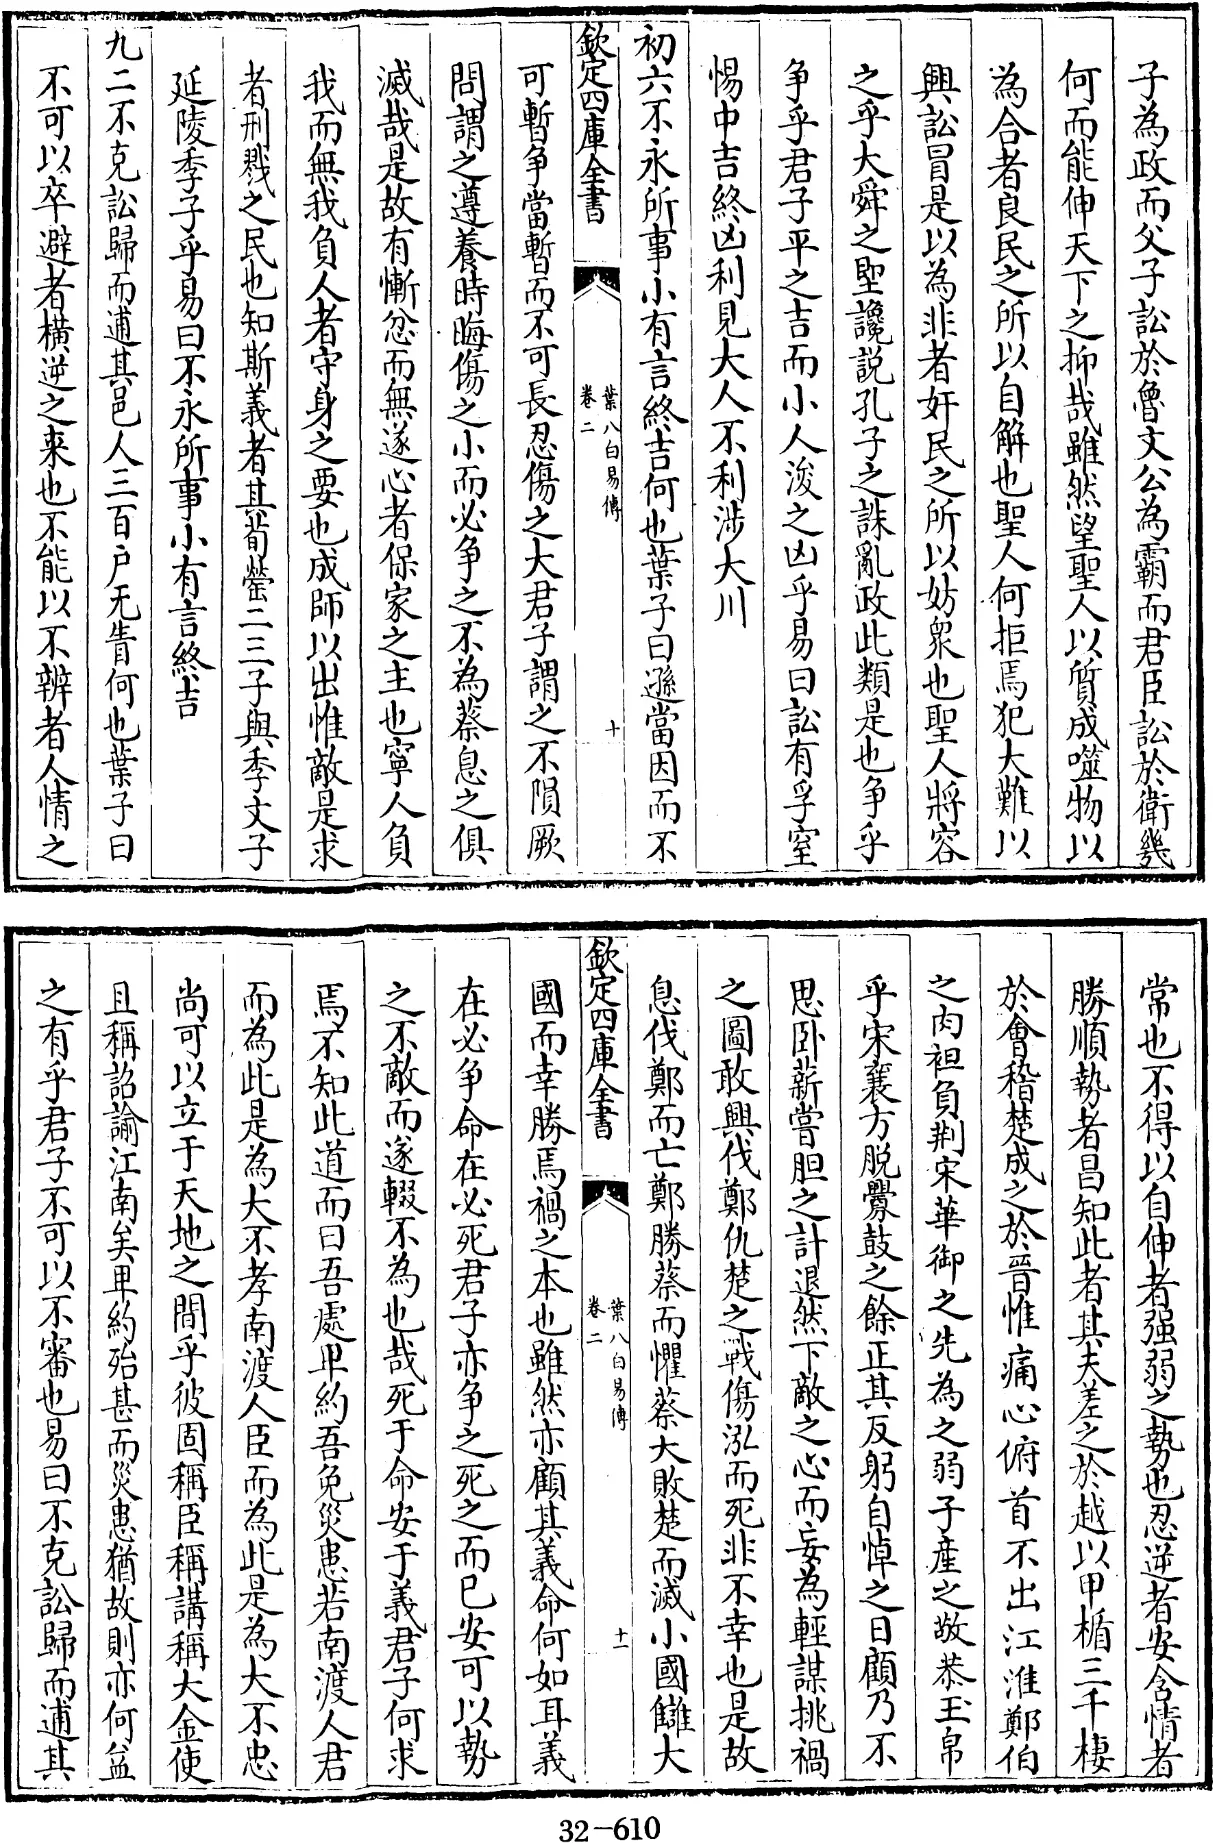 子為政而父子訟於魯文公為霸而君臣訟於衛幾
何而能伸天下之抑哉雖然望聖人以質成噬物以
為合者良民之所以自解也聖人何拒焉犯大難以
興訟冒是以為非者奸民之所以妨衆也聖人將容
之乎大舜之聖讒説孔子之誅亂政此類是也争乎
争乎君子平之吉而小人浚之凶乎易曰訟有孚窒
惕中吉終凶利見大人不利涉大川
初六不永所事小有言終吉何也葉子曰遜當因而不
欽定四庫全書
葉八白易傳
卷二
十
可暫争當暫而不可長忍傷之大君子謂之不隕厥
問謂之遵養時晦傷之小而必争之不為蔡息之俱
滅哉是故有慚忿而無遂心者保家之主也寧人負
我而無我負人者守身之要也成師以出惟敵是求
者刑戮之民也知斯義者其荀罃二三子與季文子
延陵季子乎易曰不永所事小有言終吉
九二不克訟歸而逋其邑人三百户无眚何也葉子曰
不可以卒避者橫逆之来也不能以不辨者人情之
常也不得以自伸者强弱之勢也忍逆者安含情者
勝順勢者昌知此者其夫差之於越以甲楯三千棲
於會稽楚成之於晉惟痛心俯首不出江淮鄭伯
之肉袒負荆宋華御之先為之弱子產之敬恭玉帛
乎宋襄方脱釁鼓之餘正其反躬自悼之日顧乃不
思卧薪嘗胆之計退然下敵之心而妄為輕謀挑禍
之圖敢興伐鄭仇楚之戰傷泓而死非不幸也是故
息伐鄭而亡鄭勝蔡而懼蔡大敗楚而滅小國讎大
欽定四庫全書
葉八白易傳
卷二
十一
國而幸勝焉禍之本也雖然亦顧其義命何如耳義
在必争命在必死君子亦争之死之而已安可以勢
之不敵而遂輟不為也哉死于命安于義君子何求
焉不知此道而曰吾處卑約吾免災患若南渡人君
而為此是為大不孝南渡人臣而為此是為大不忠
尚可以立于天地之間乎彼固稱臣稱講稱大金使
且稱詔諭江南矣卑約殆甚而災患猶故則亦何益
之有乎君子不可以不審也易曰不克訟歸而逋其
32-610